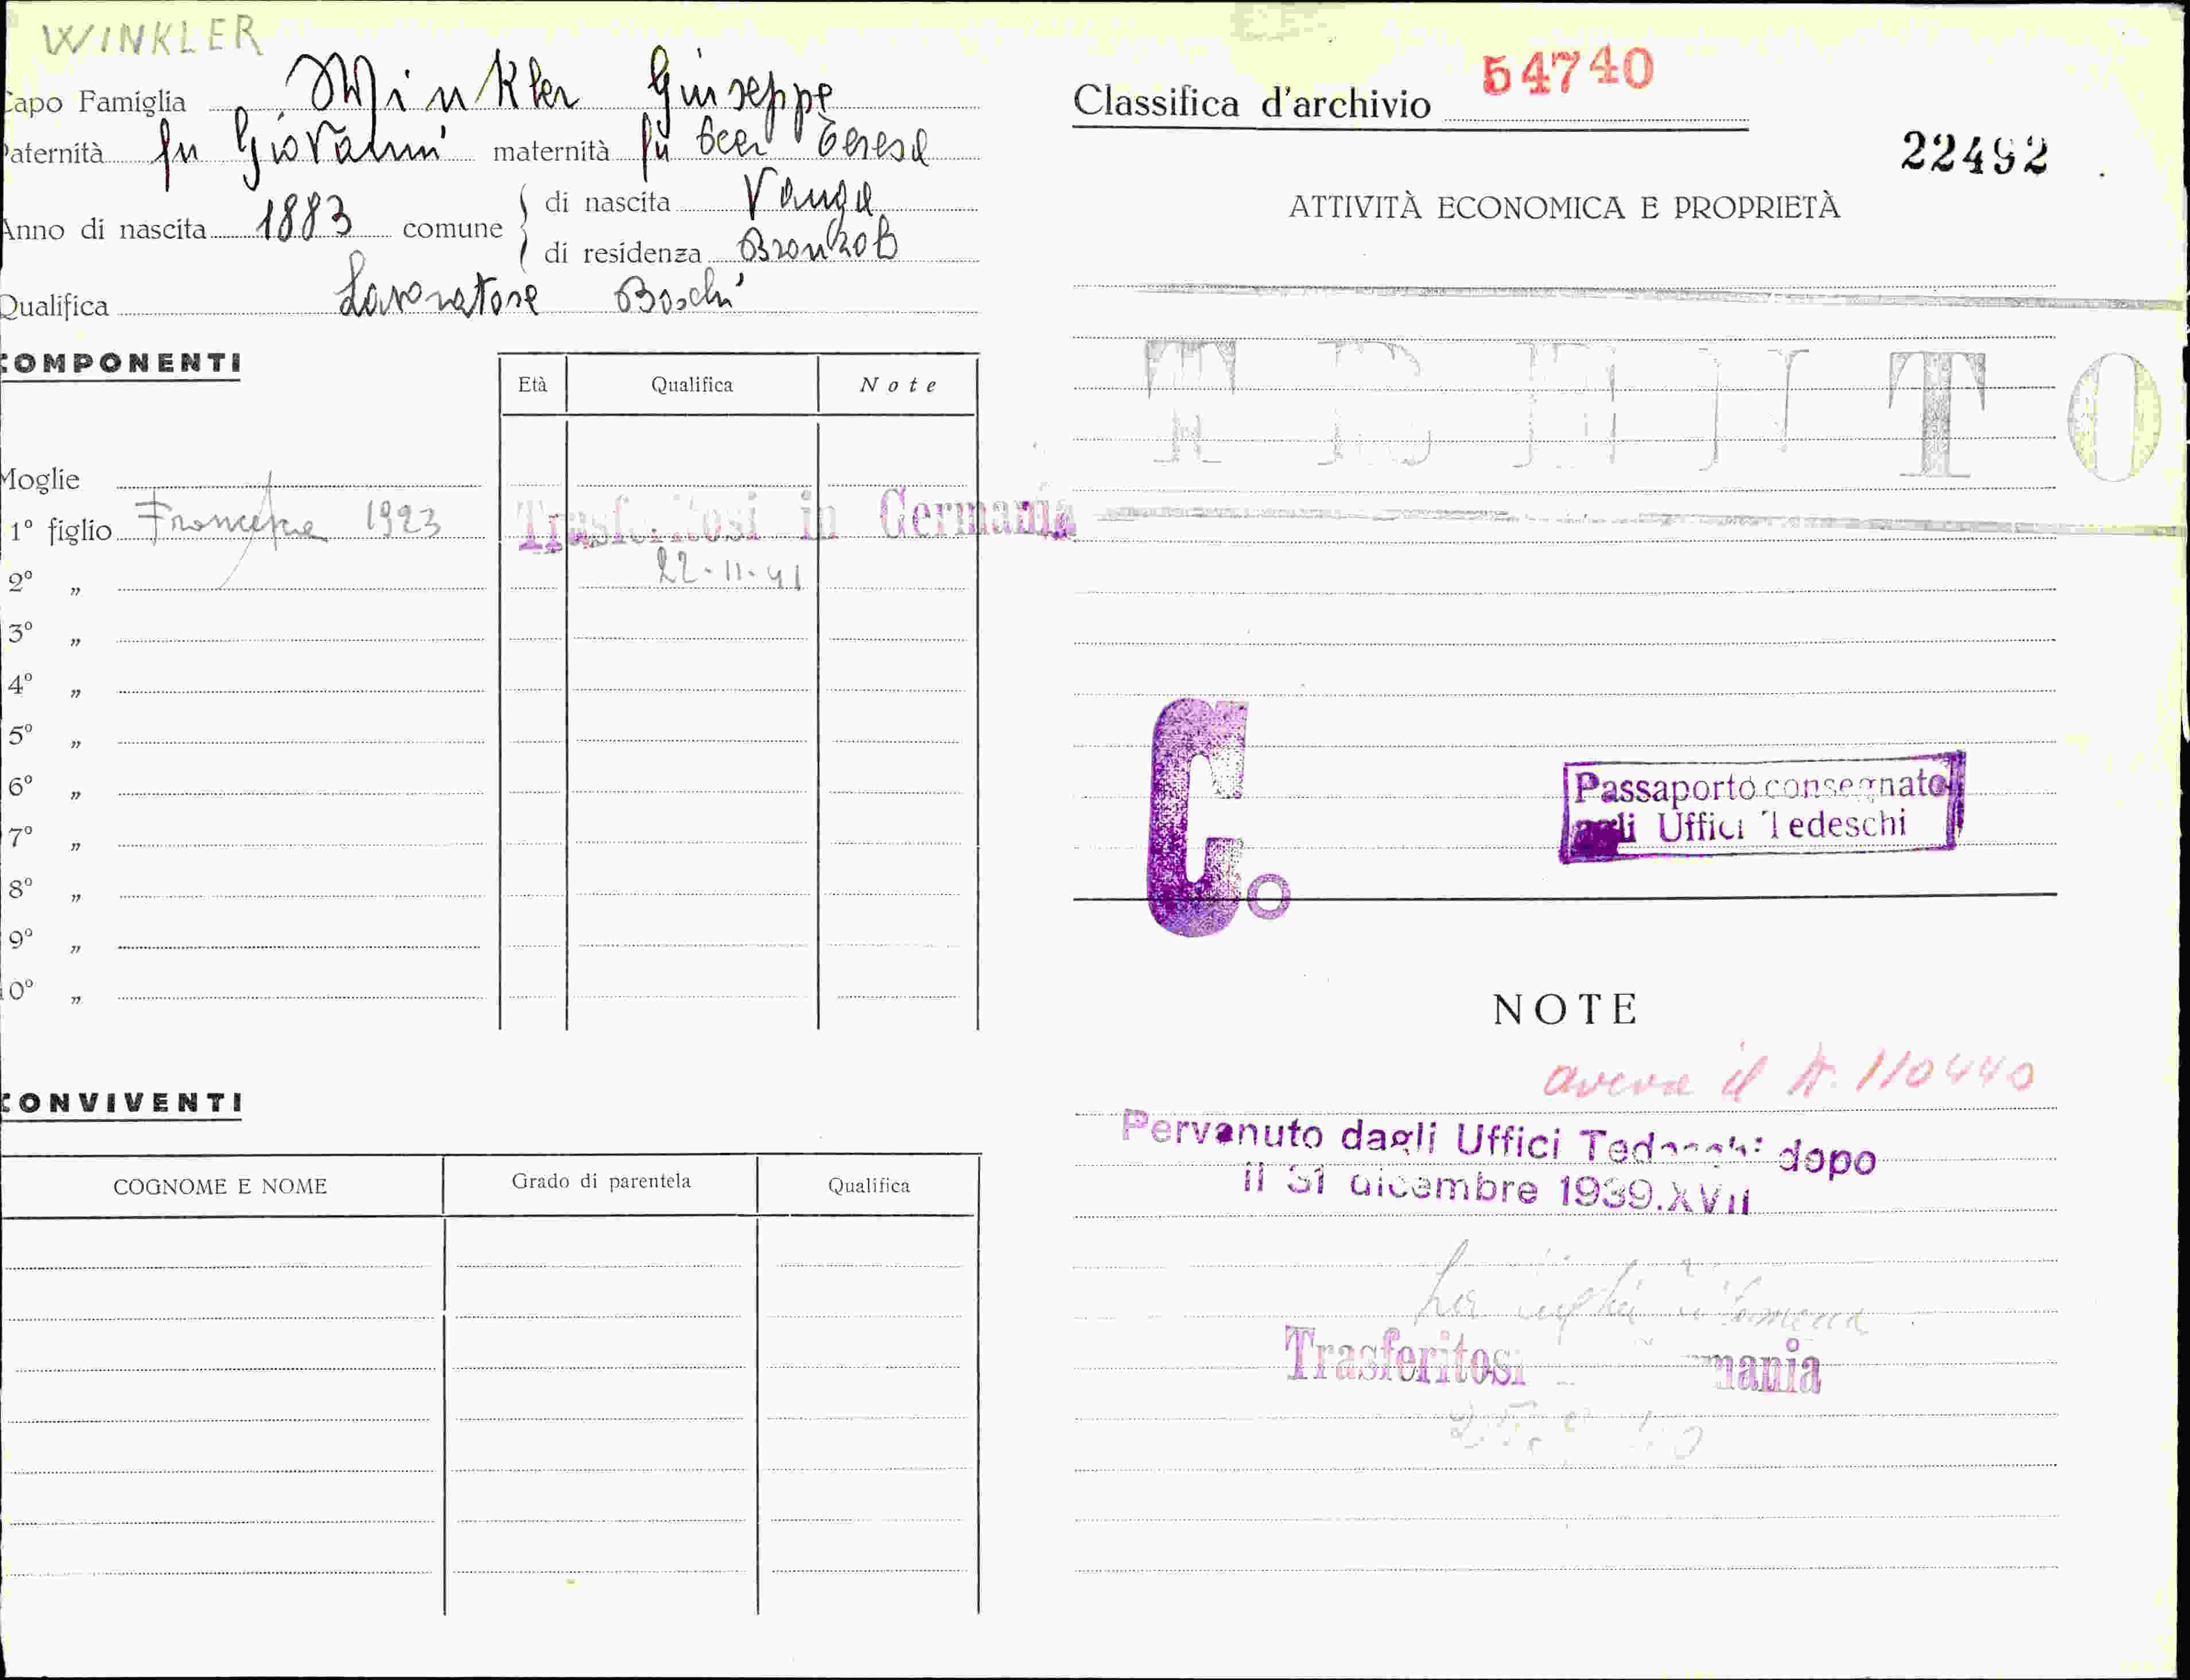 WINKLER
Capo Famiglia Winkler Giuseppe
Paternità fu Giovanni maternità fu Beer Teresa
Anno di nascita 1883 comune
di nascita Vanga
di residenza Bronzolo
Qualifica Lavoratore Boschi
COMPONENTI
Età Qualifica Note
Moglie
1º figlio Francesca 1923
Trasferitosi in Germania
22-11-41
2º „
3º „
4º „
5º „
6º „
7º „
8º „
9º „
10º „
CONVIVENTI
COGNOME E NOME Grado di parentela Qualifica
Classifica d'archivio 54740
22492
ATTIVITÀ ECONOMICA E PROPRIETÀ
TRENTO
Co
Passaporto consegnato
agli Uffici Tedeschi
NOTE
aveva il N. 110440
Pervenuto dagli Uffici Tedeschi dopo
il 31 dicembre 1939.XVII
La
Trasferitosi in Germania